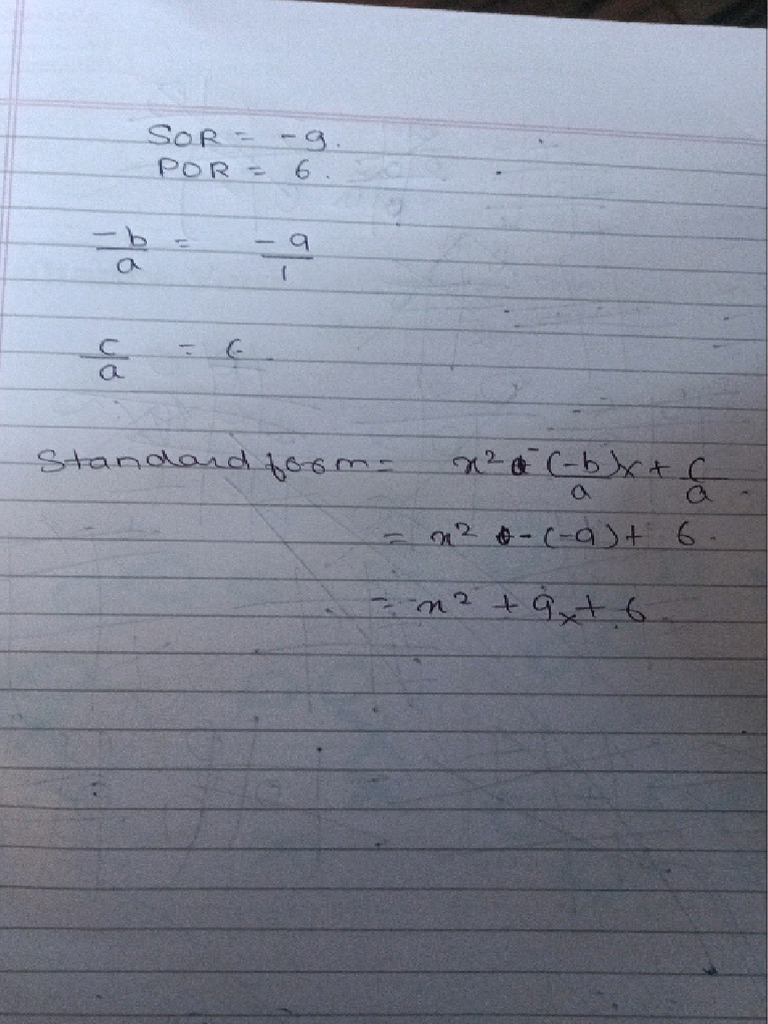 SOR = -9.
POR = 6.
-b/a = -9/1
c/a = 6
Standard form = x² - (-b/a)x + c/a.
= x² - (-9) + 6.
= x² + 9x + 6.